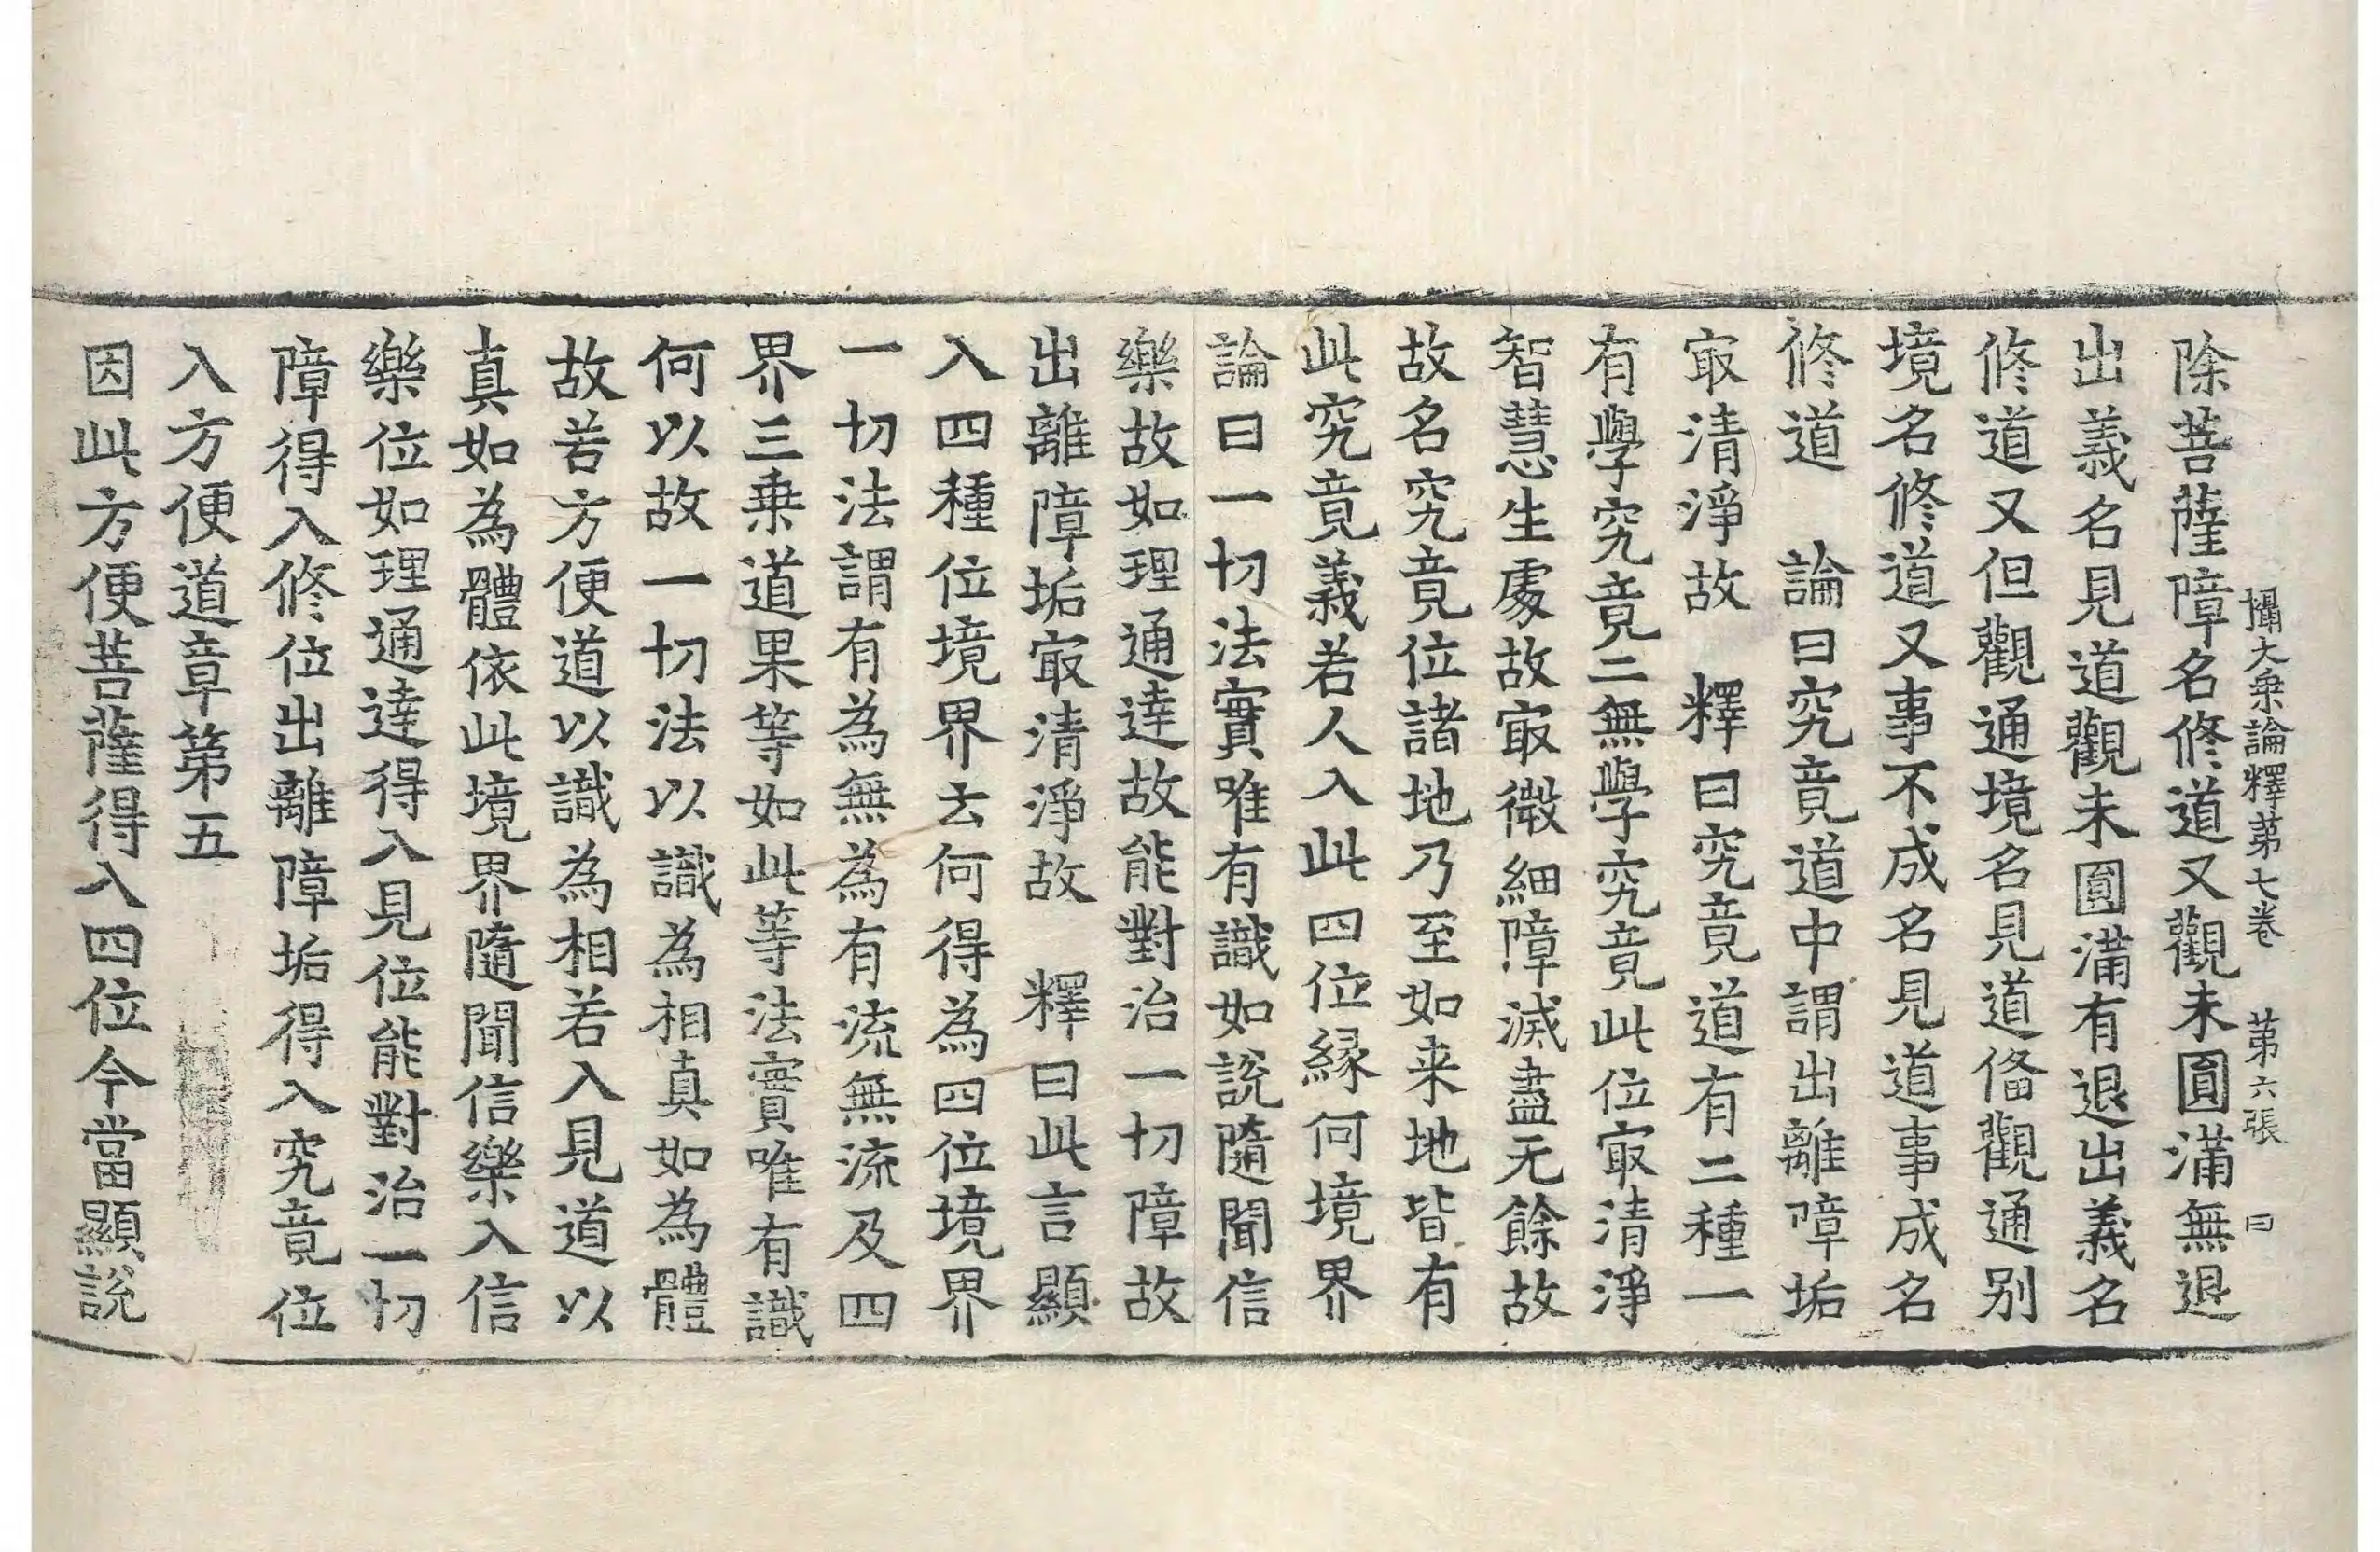 攝大乗論釋第七卷 第六張 曰
除菩薩障名修道又觀未圓滿無退
出義名見道觀未圓滿有退出義名
修道又但觀通境名見道俻觀通別
境名修道又事不成名見道事成名
修道 論曰究竟道中謂出離障垢
㝡清淨故 釋曰究竟道有二種一
有學究竟二無學究竟此位㝡清淨
智慧生處故㝡微細障滅盡无餘故
故名究竟位諸地乃至如来地皆有
此究竟義若人入此四位緣何境界
論曰一切法實唯有識如說隨聞信
樂故如理通達故能對治一切障故
出離障垢㝡清淨故 釋曰此言顯
入四種位境界云何得為四位境界
一切法謂有為無為有流無流及四
界三乗道果等如此等法實唯有識
何以故一切法以識為相真如為體
故若方便道以識為相若入見道以
真如為體依此境界隨聞信樂入信
樂位如理通達得入見位能對治一切
障得入修位出離障垢得入究竟位
入方便道章第五
因此方便菩薩得入四位今當顯說